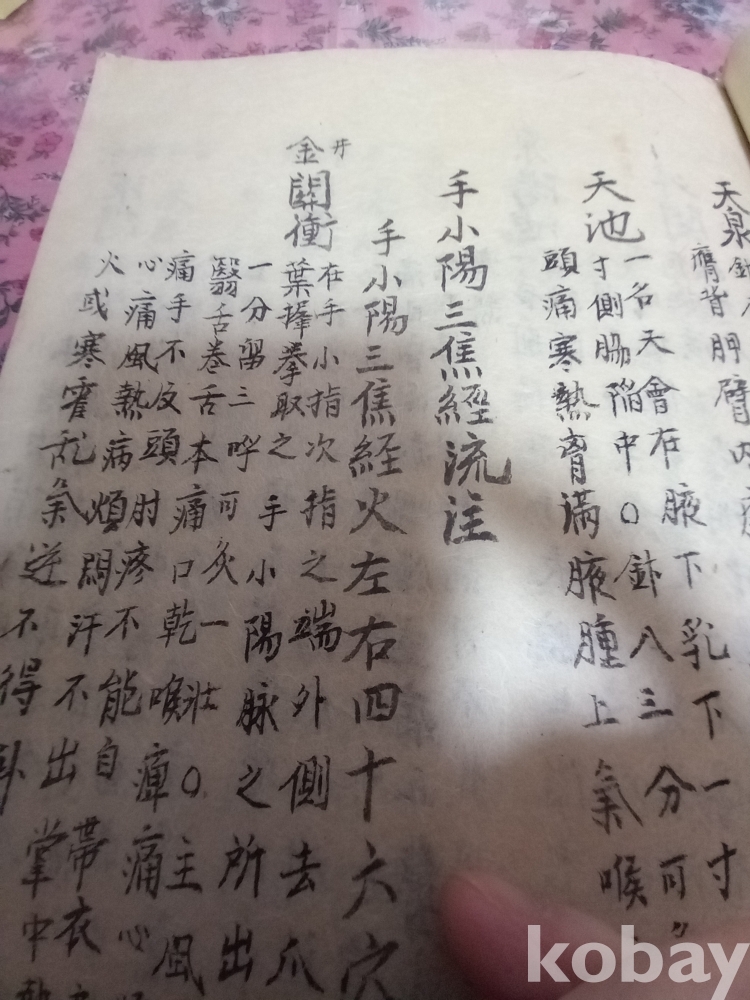 天泉
膺背胛臂內
天池
一名天會在腋下乳下一寸
寸側脇陷中○鉢八三分可〃
頭痛寒熱胷滿腋腫上氣喉
手小陽三焦經流注
手小陽三焦經火左右四十六穴
井
金關衝
在手小指次指之端外側去爪
葉握拳取之手小陽脉之所出
一分留三呼可〃灸一壯○主風
翳舌卷舌本痛口乾喉痺痛心
痛手不反頭肘疼不能自帶衣
心痛風熱病煩悶汗不出掌中
火或寒霍乱氣逆不得卧
kobay